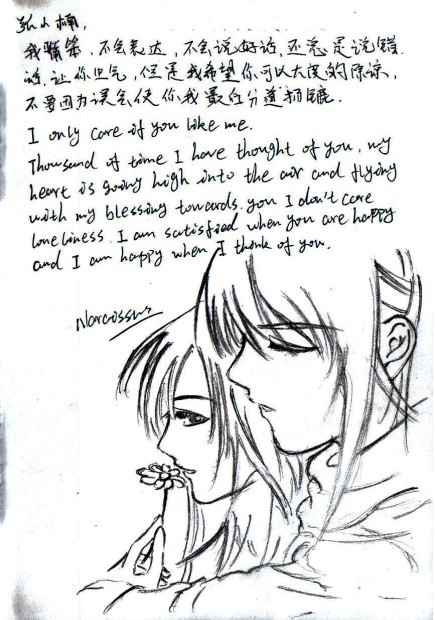 张小楠,
我嘴笨,不会表达,不会说好话,还总是说错
话,让你生气,但是我希望你可以大度的原谅,
不要因为误会使你我最后分道扬镳.
I only care if you like me.
Thousand of time I have thought of you, my
heart is going high into the air and flying
with my blessing towards you I don't care
loneliness. I am satisfied when you are happy
and I am happy when I think of you.
Narcossus